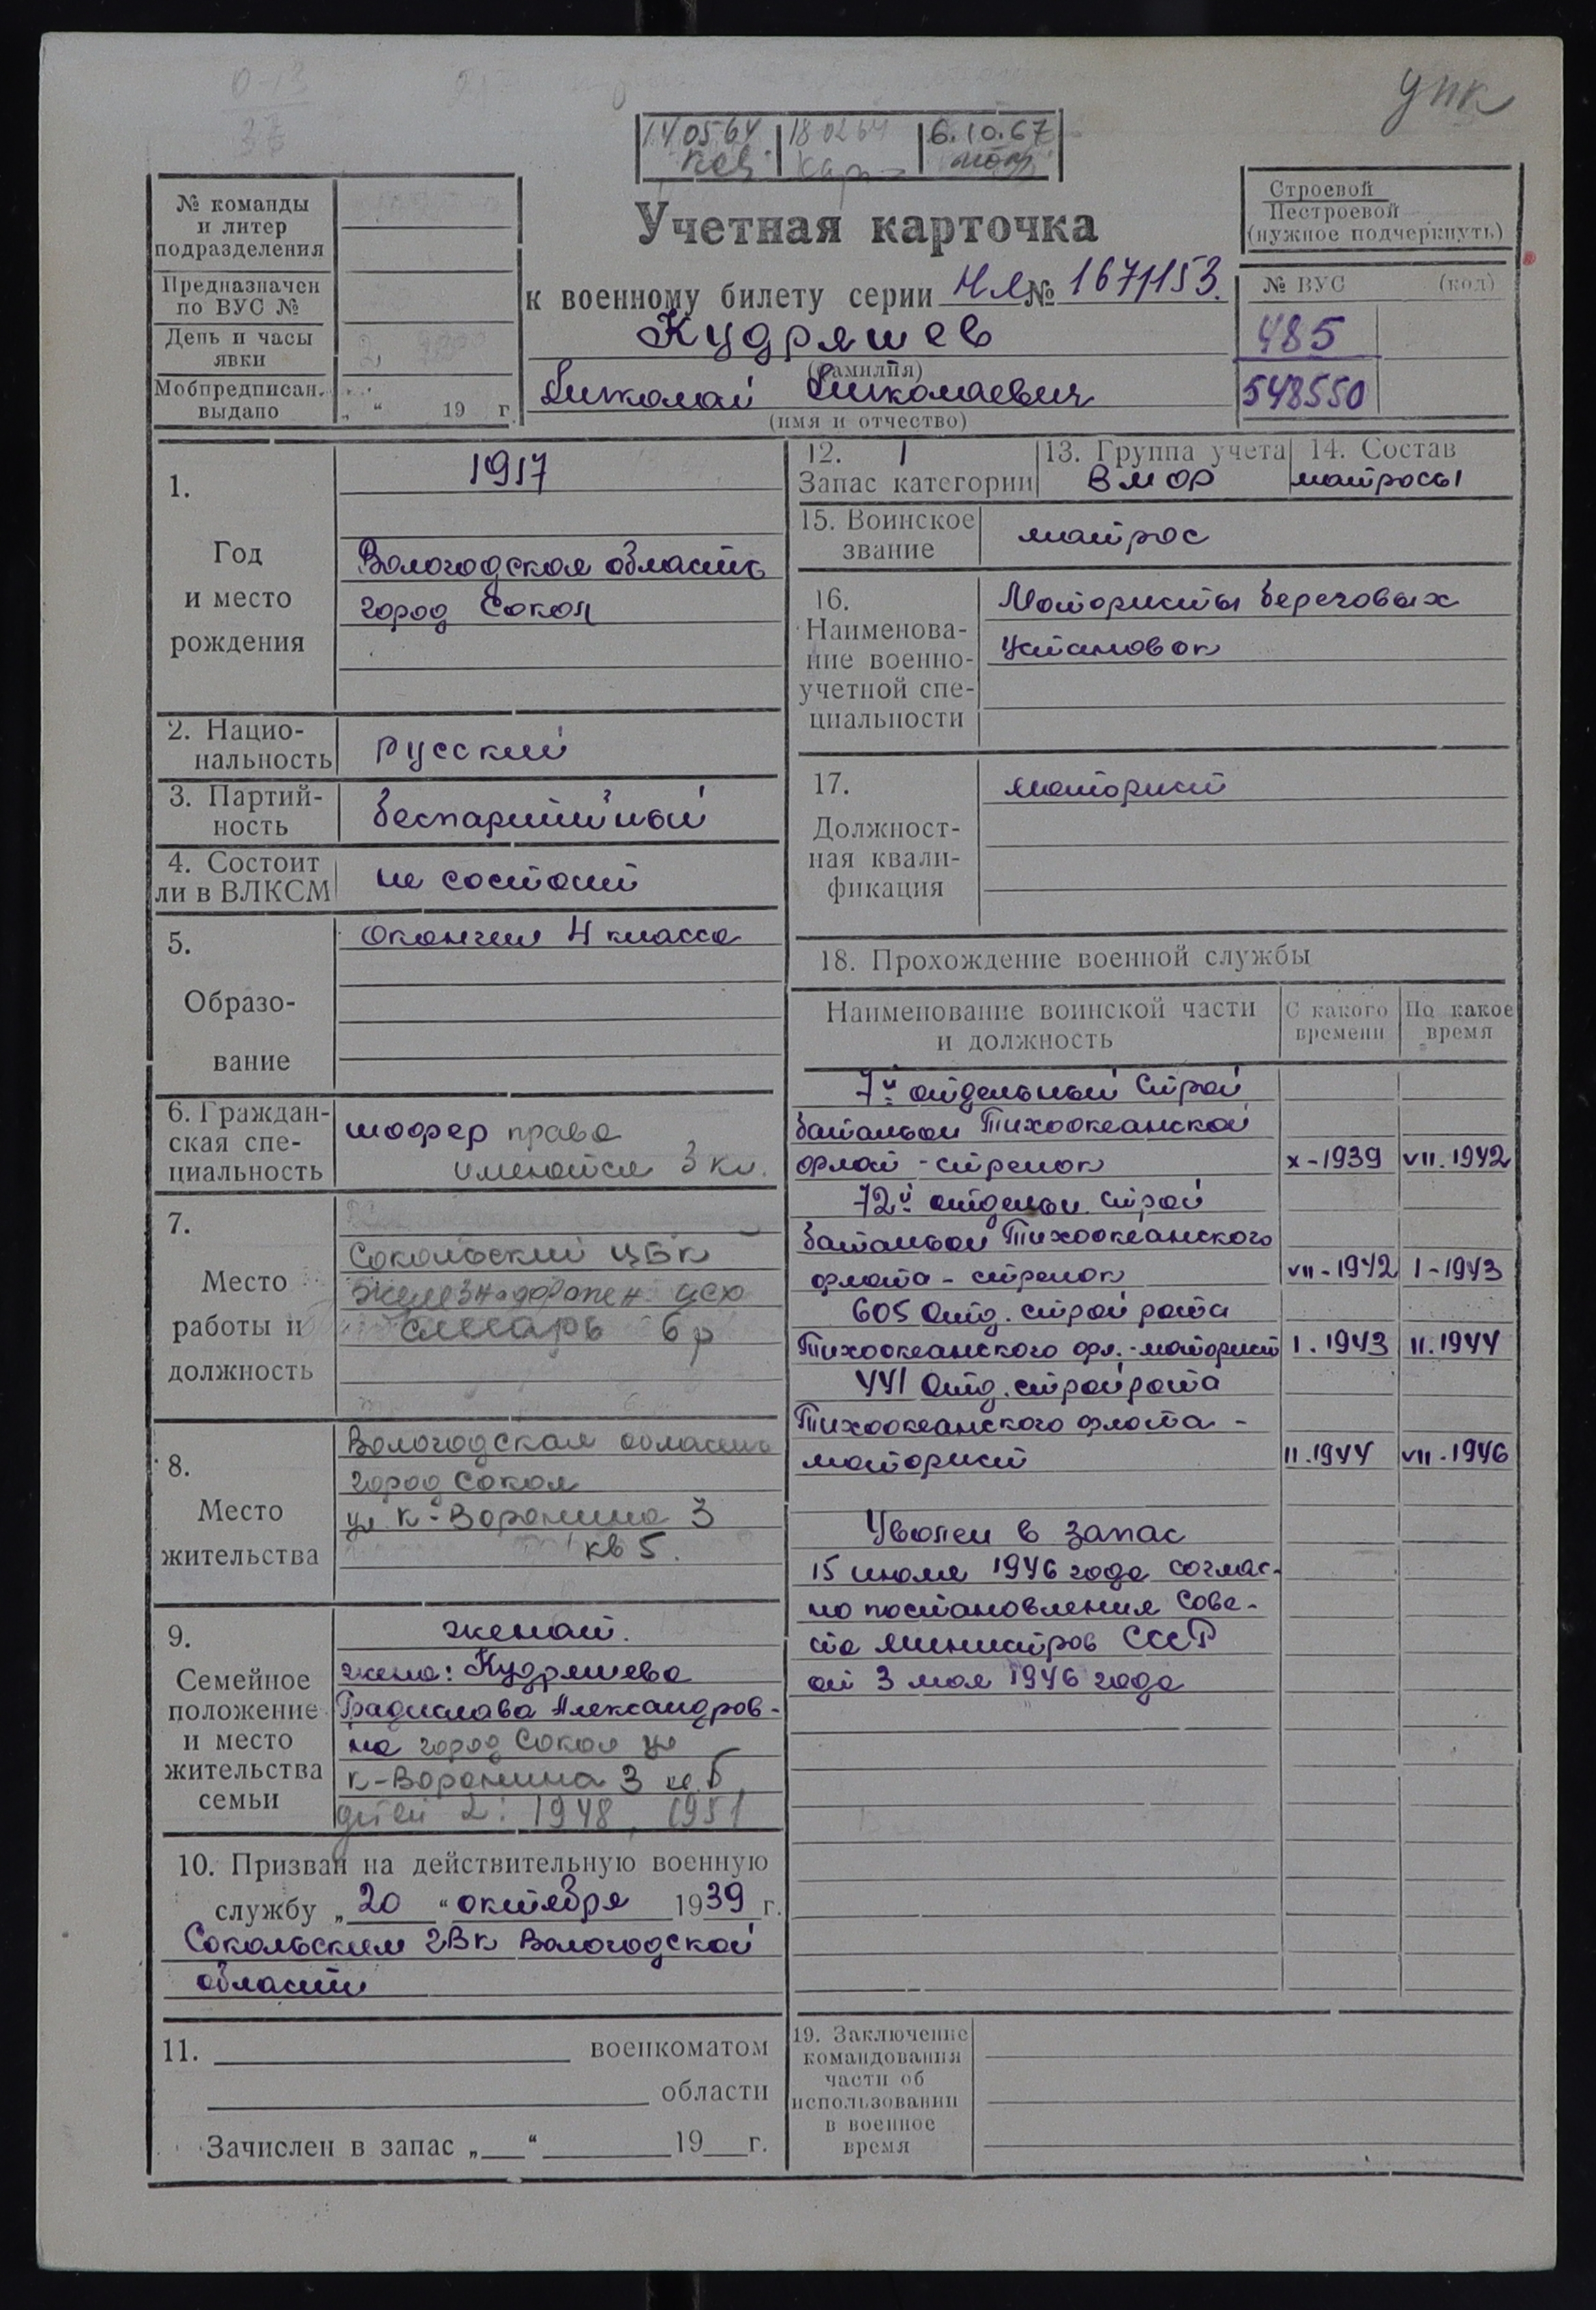 упк
14 05 64
18 02 64
6.10.67
№ команды
и литер
подразделения
Предназначен
по ВУС №
День и часы
явки
Мобпредписан.
выдано
„ “ 19 г.
Учетная карточка
к военному билету серии НЯ № 1671153.
Кудряшев
(фамилия)
Николай Николаевич
(имя и отчество)
Строевой
Нестроевой
(нужное подчеркнуть)
№ ВУС (код)
485
548550
1.
Год
и место
рождения
1917
Вологодская область
город Сокол
2. Нацио-
нальность
русский
3. Партий-
ность
беспартийный
4. Состоит
ли в ВЛКСМ
не состоит
5.
Образо-
вание
Окончил 4 класса
6. Граждан-
ская спе-
циальность
шофер права
имеются 3 кл.
7.
Место
работы и
должность
Сокольский ЦБК
железнодорожн. цех
слесарь 6 р
8.
Место
жительства
Вологодская область
город Сокол
ул К-Воронина 3
кв 5.
9.
Семейное
положение
и место
жительства
семьи
женат.
жена: Кудряшева
Градислава Александров-
на город Сокол ул
К-Воронина 3 кв 5
детей 2: 1948, 1951
10. Призван на действительную военную
службу „20“ октября 1939 г.
Сокольским ГВК Вологодской
области
11. военкоматом
области
Зачислен в запас „ “ 19 г.
12. 1
Запас категории
13. Группа учета
ВМФ
14. Состав
матросы
15. Воинское
звание
матрос
16.
Наименова-
ние военно-
учетной спе-
циальности
Мотористы береговых
установок
17.
Должност-
ная квали-
фикация
моторист
18. Прохождение военной службы
Наименование воинской части
и должность
С какого
времени
По какое
время
7й отдельный строй
батальон Тихоокеанской
флот - стрелок X-1939 VII.1942
72й отдельн. строй
батальон Тихоокеанского
флота - стрелок VII-1942 I-1943
605 Отд. строй рота
Тихоокеанского фл.-моторист I.1943 II.1944
441 Отд. стройрота
Тихоокеанского флота -
моторист II.1944 VII-1946
Уволен в запас
15 июля 1946 года соглас-
но постановления Сове-
та Министров СССР
от 3 мая 1946 года
19. Заключение
командования
части об
использовании
в военное
время